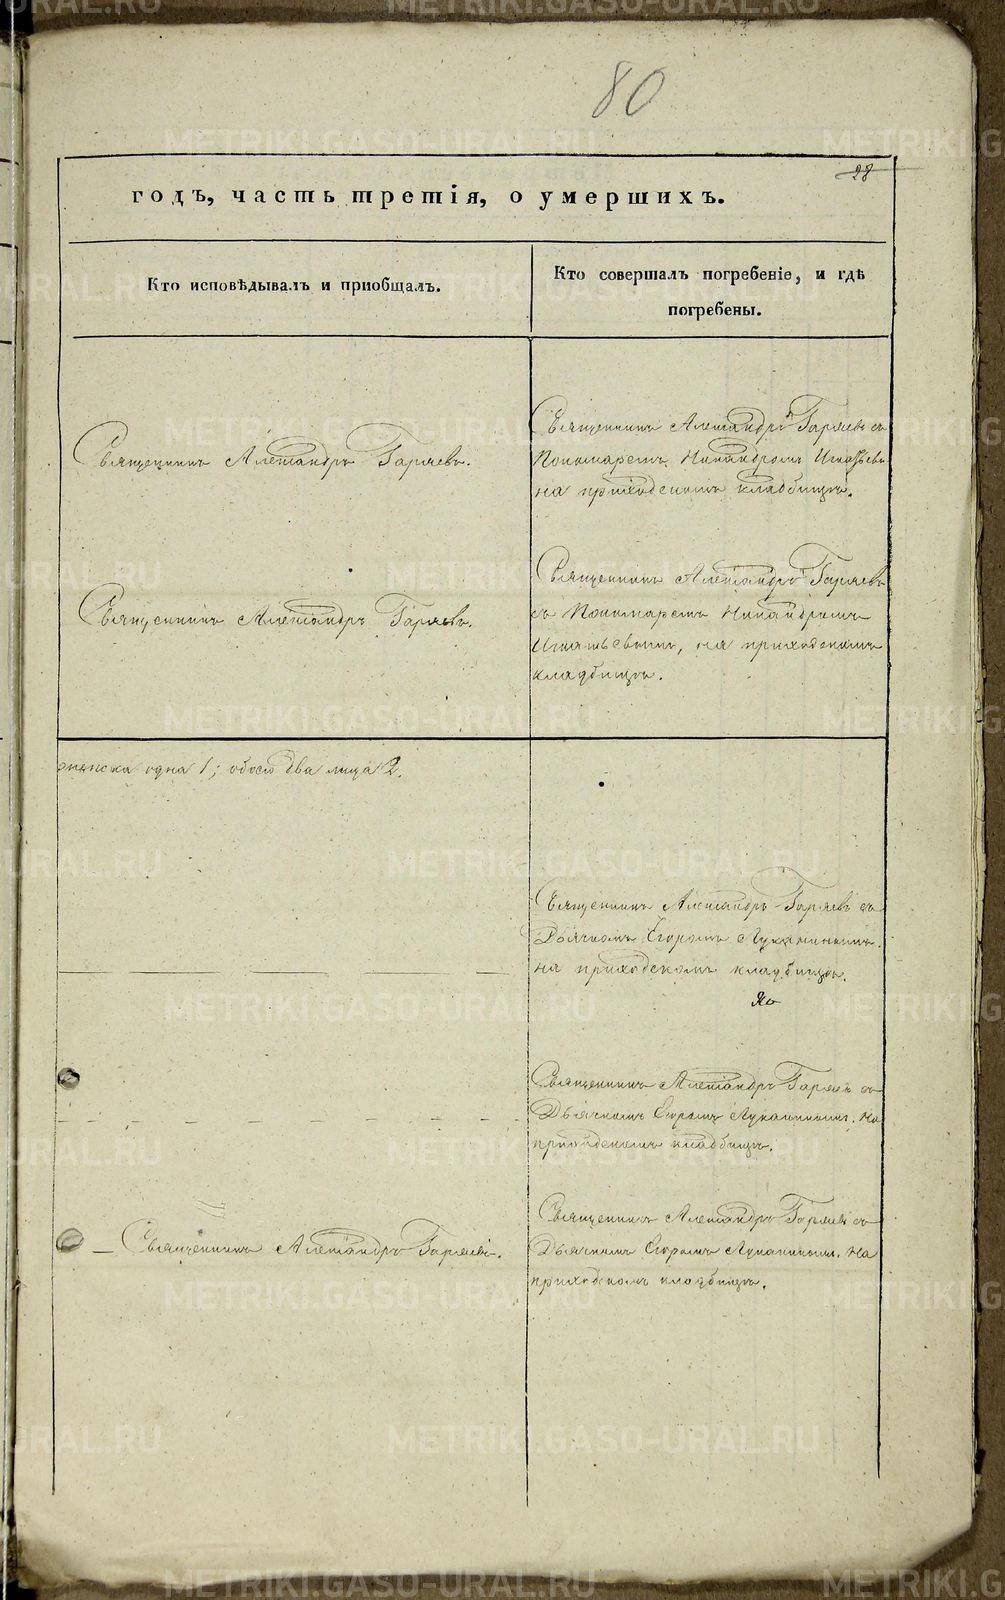 80
28
годъ, часть третія, о умершихъ.
Кто исповѣдывалъ и приобщалъ.
Кто совершалъ погребеніе, и гдѣ
погребены.
Священникъ Александръ Гаряевъ.
Священникъ Александръ Гаряевъ съ
Пономаремъ Никандромъ Игнатьев
на приходскомъ кладбищѣ.
Священникъ Александръ Гаряевъ.
Священникъ Александръ Гаряевъ
съ Пономаремъ Никандромъ
Игнатьевымъ, на приходскомъ
кладбищѣ.
женска одна 1; обоего два лица 2.
Священникъ Александръ Гаряевъ съ
Дьячкомъ Егоромъ Лукининымъ.
на приходскомъ кладбищѣ.
Священникъ Александръ Гаряевъ съ
Дьячкомъ Егоромъ Лукининымъ. На
приходскомъ кладбищѣ.
Священникъ Александръ Гаряевъ.
Священникъ Александръ Гаряевъ съ
Дьячкомъ Егоромъ Лукининымъ. На
приходскомъ кладбищѣ.
METRIKI.GASO-URAL.RU